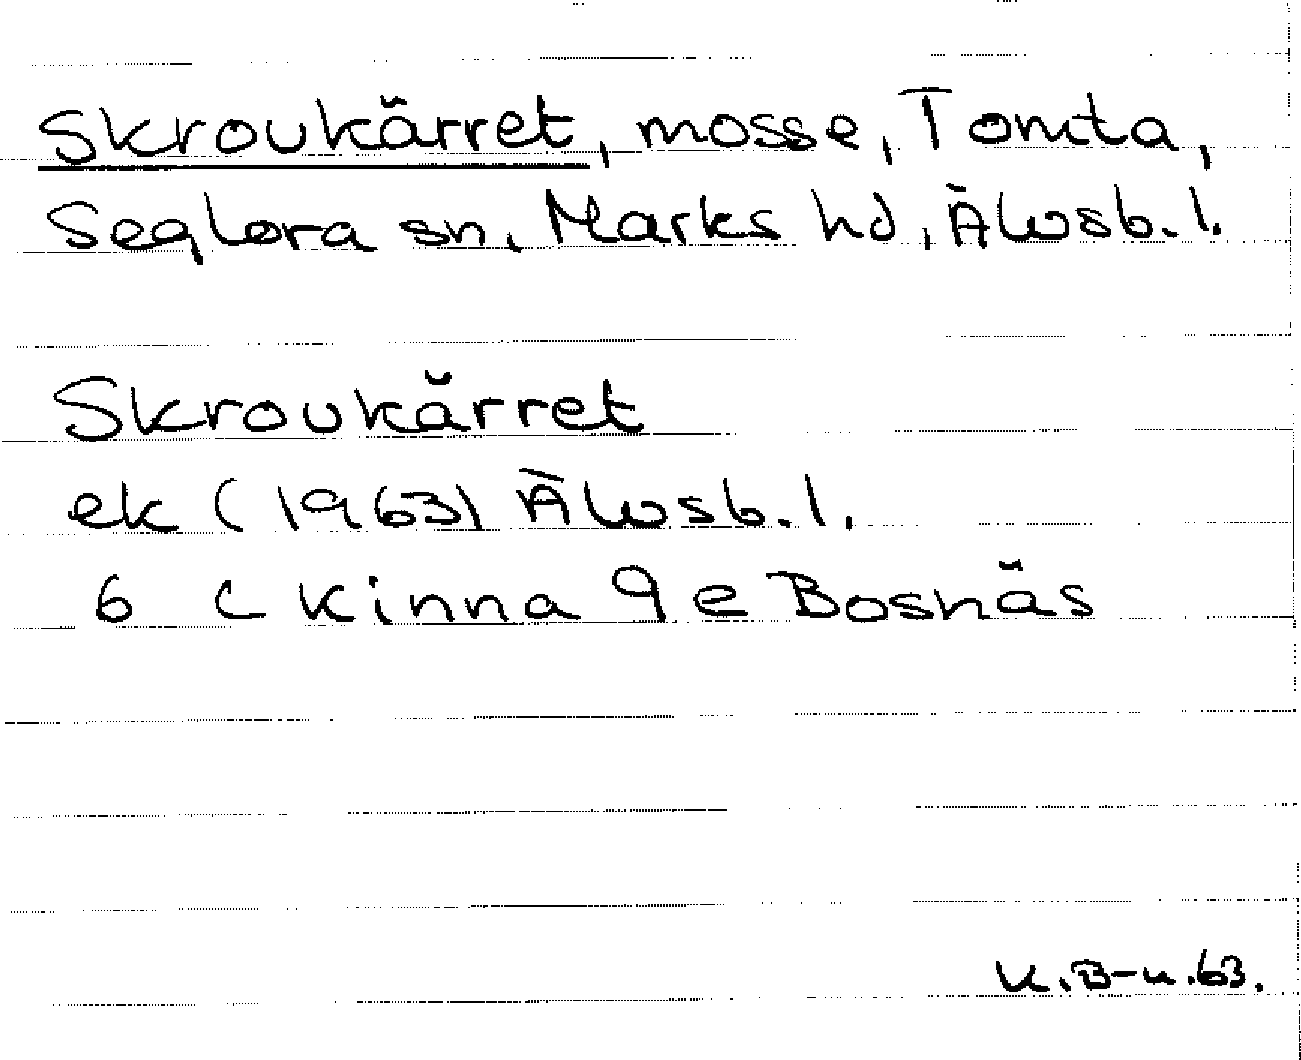 Skroukärret, mosse, Tomta,
Seglora sn, Marks hd, Älvsb. l.
Skroukärret
ek (1963) Älvsb. l.
6 C Kinna 9 e Bosnäs
K.B-n.63.